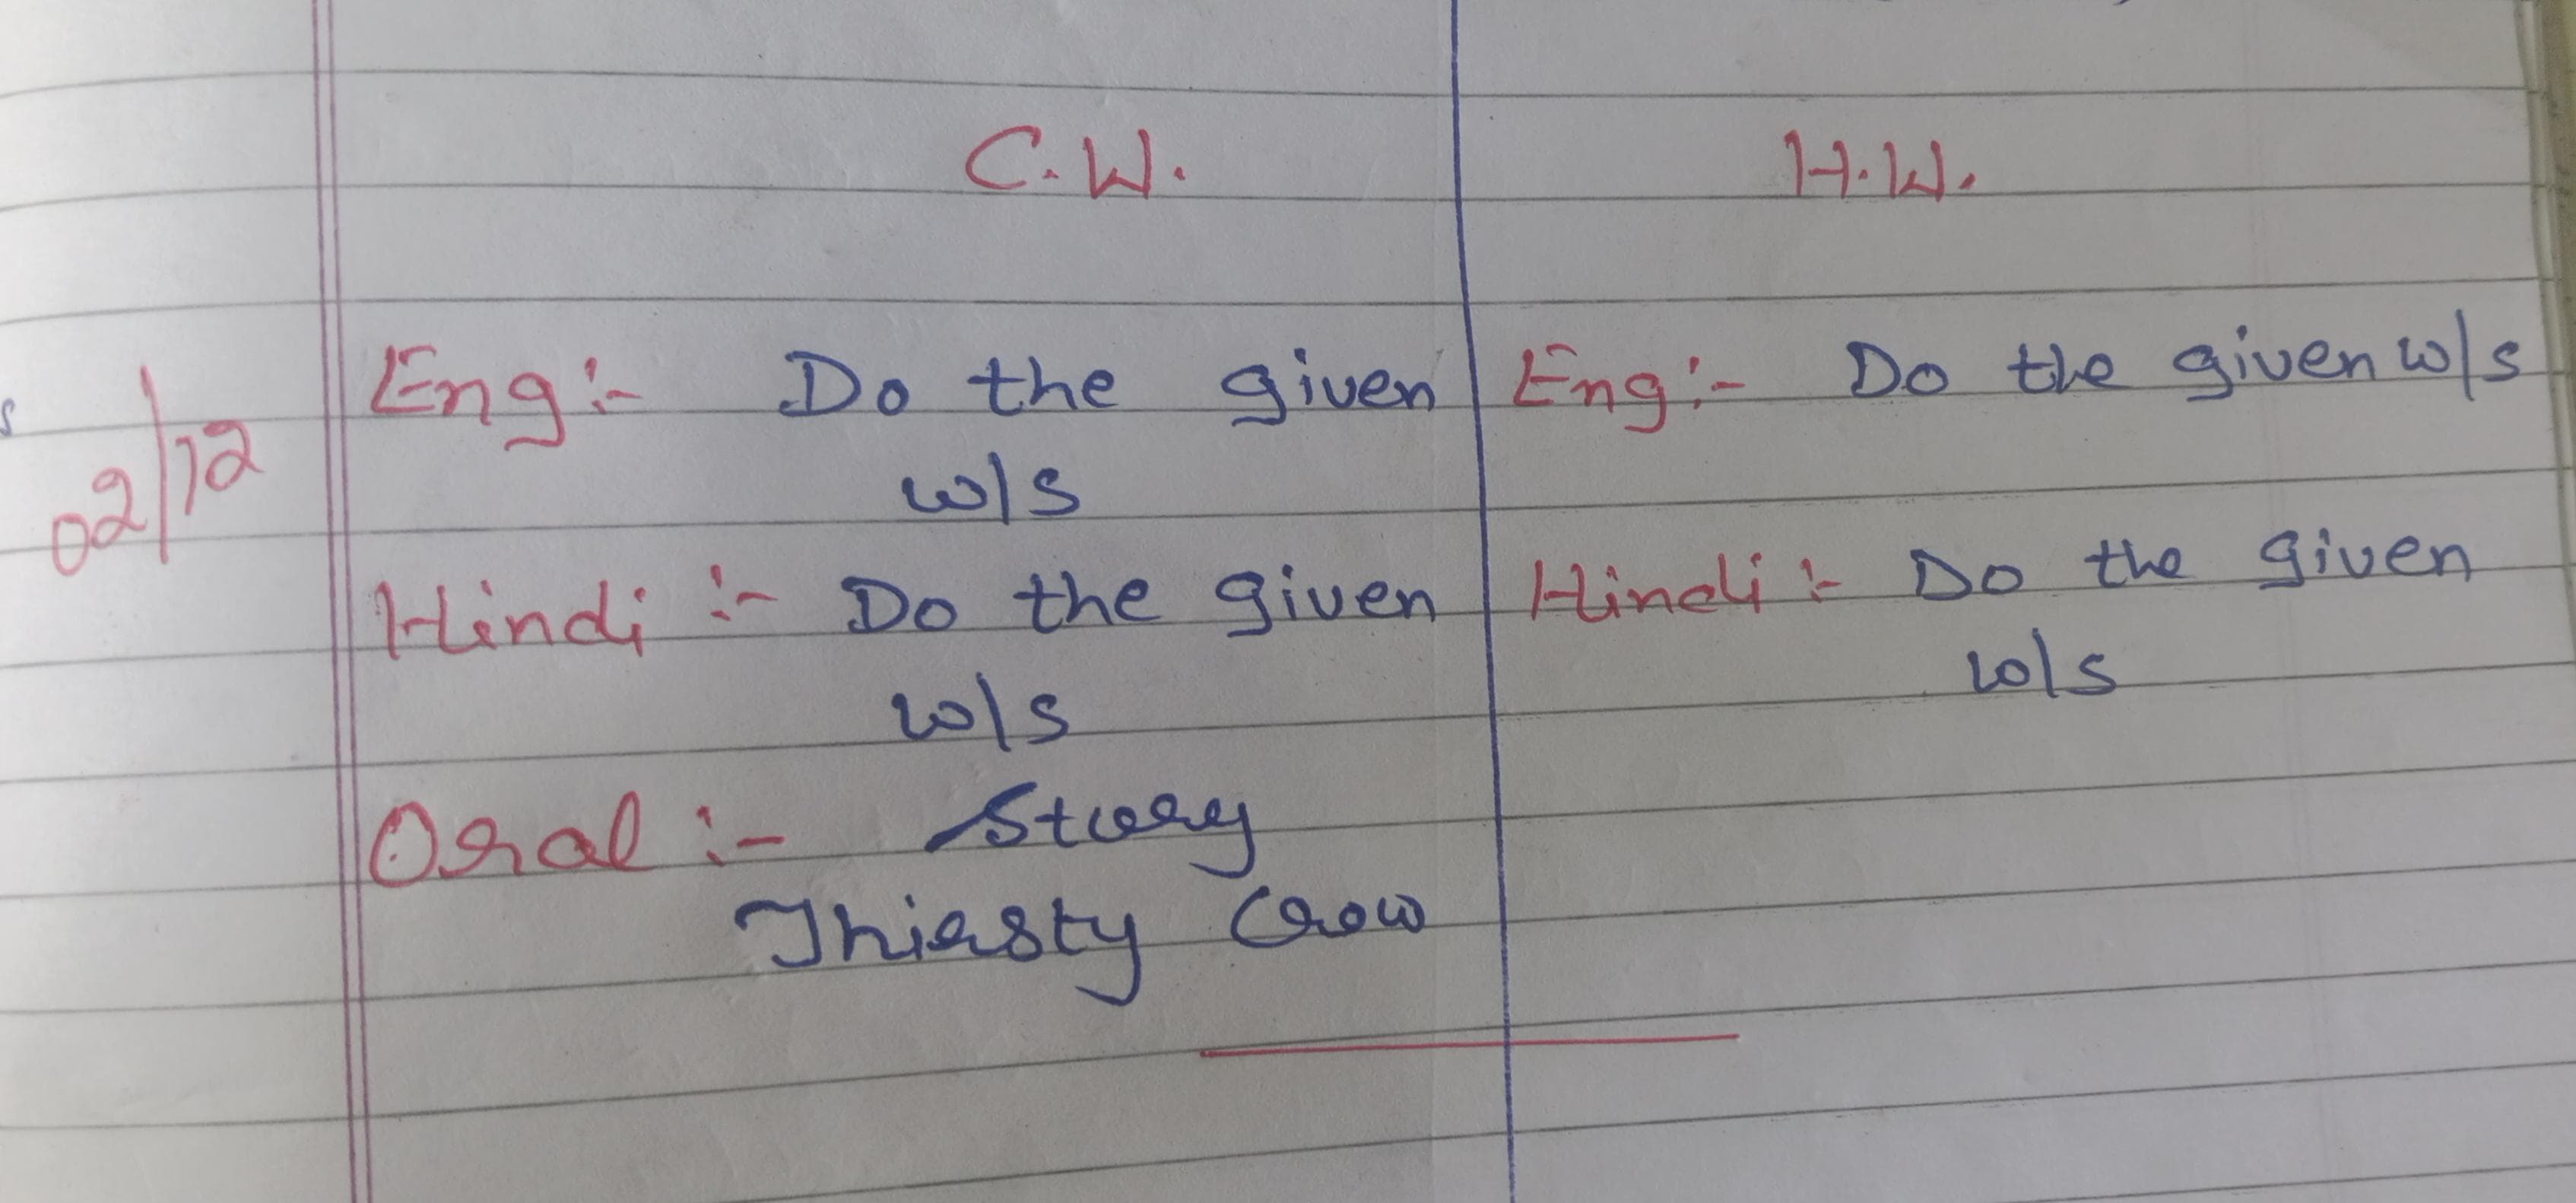 C.W.
H.W.
02/12
Eng:- Do the given
w/s
Hindi :- Do the given
w/s
Oral :- Story
Thirsty Crow
Eng:- Do the given w/s
Hindi :- Do the given
w/s